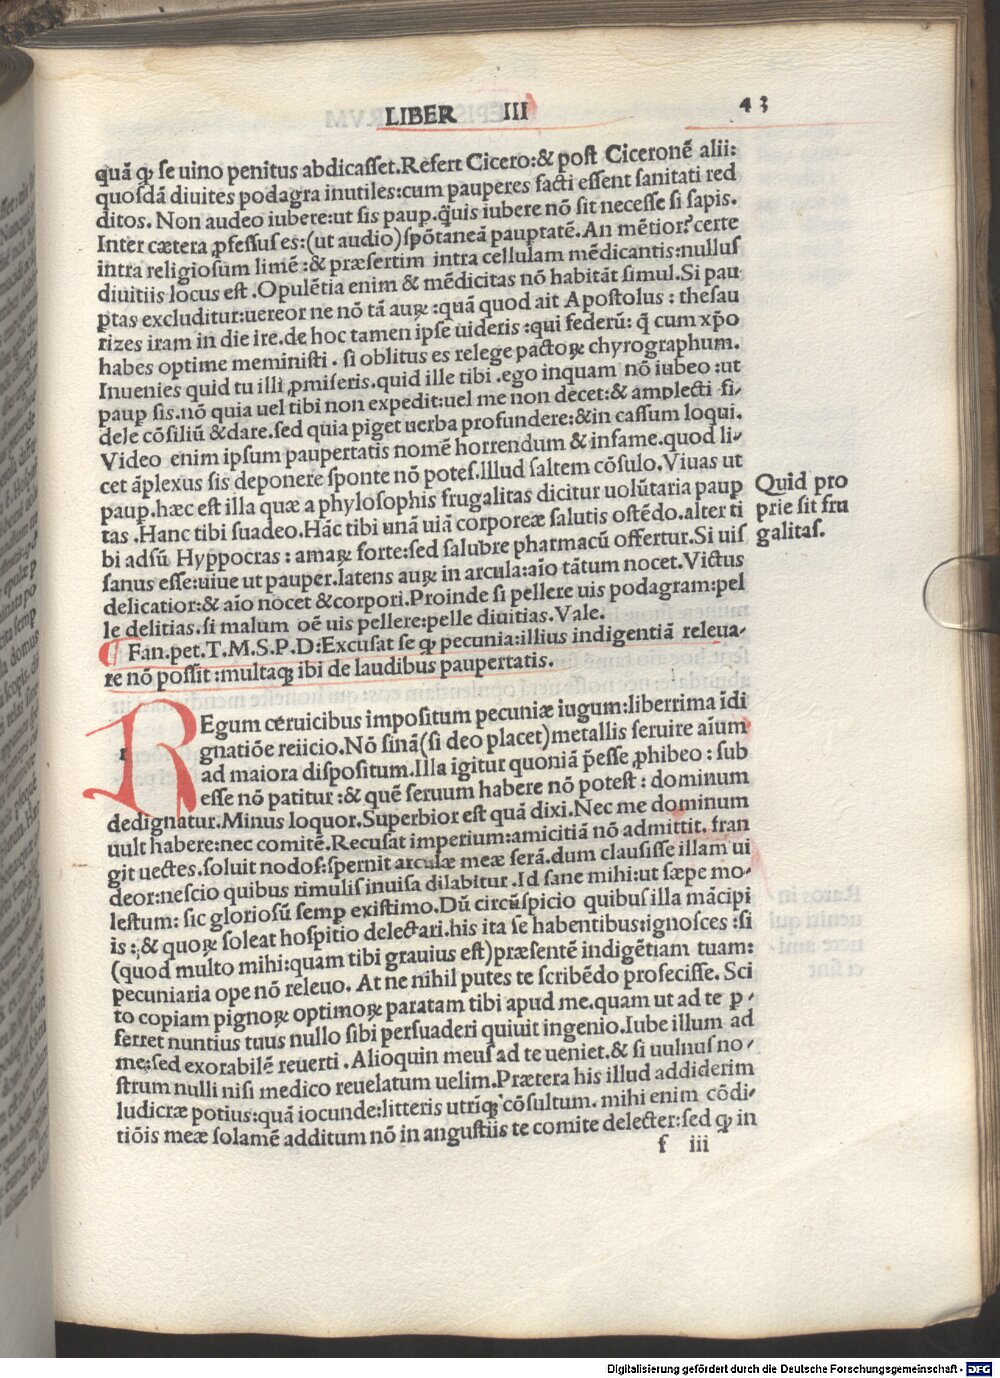 LIBER III 43
quã ꝙ ſe uino penitus abdicaſſet.Refert Cicero:& poſt Ciceronẽ alii:
quoſdã diuites podagra inutiles:cum pauperes facti eſſent ſanitati red
ditos. Non audeo iubere:ut ſis paup.q̃uis iubere nõ ſit neceſſe ſi ſapis.
Inter cætera ꝓfeſſuſ es:(ut audio)ſpõtaneã pauptatẽ.An mẽtior?certe
intra religioſum limẽ:& præſertim intra cellulam mẽdicantis:nulluſ
diuitiis locus eſt.Opulẽtia enim & mẽdicitas nõ habitãt ſimul.Si pau
ꝑtas excluditur:uereor ne nõ tã auꝝ:quã quod ait Apoſtolus: theſau
rizes iram in die ire.de hoc tamen ipſe uideris:qui federũ: q̃ cum xp̃o
habes optime meminiſti. ſi oblitus es relege pactoꝝ chyrographum.
Inuenies quid tu illi ꝓmiſeris.quid ille tibi.ego inquam nõ iubeo:ut
paup ſis.nõ quia uel tibi non expedit:uel me non decet:& amplecti fi-
dele cõſiliũ & dare.ſed quia piget uerba profundere:& in caſſum loqui.
Video enim ipſum paupertatis nomẽ horrendum & infame.quod li-
cet ãplexus ſis deponere ſponte nõ poteſ.Illud ſaltem cõſulo.Viuas ut
paup.hæc eſt illa quæ a phyloſophis frugalitas dicitur uolũtaria paup
tas.Hanc tibi ſuadeo.Hãc tibi unã uiã corporeæ ſalutis oſtẽdo.alter ti
bi adſũ Hyppocras: amaꝝ forte:ſed ſalubre pharmacũ offertur.Si uiſ
ſanus eſſe:uiue ut pauper.latens auꝝ in arcula:aĩo tãtum nocet.Victus
delicatior:& aĩo nocet & corpori.Proinde ſi pellere uis podagram:pel
le delitias.ſi malum oẽ uis pellere:pelle diuitias.Vale.
Quid pro
prie ſit fru
galitaſ.
Fan.pet.T.M.S.P.D:Excuſat ſe ꝙ pecunia:illius indigentiã releua-
re nõ poſſit:multaqꝫ ibi de laudibus paupertatis.
REgum ceruicibus impoſitum pecuniæ iugum:liberrima ĩdi
gnatiõe reiicio.Nõ ſinã(ſi deo placet)metallis ſeruire aĩum
ad maiora diſpoſitum.Illa igitur quoniã p̃eſſe ꝓhibeo: ſub
eſſe nõ patitur:& quẽ ſeruum habere nõ poteſt: dominum
dedignatur.Minus loquor.Superbior eſt quã dixi.Nec me dominum
uult habere:nec comitẽ.Recuſat imperium:amicitiã nõ admittit. fran
git uectes.ſoluit nodoſ:ſpernit arculæ meæ ſerã.dum clauſiſſe illam ui
deor:neſcio quibus rimuliſ inuiſa dilabitur.Id ſane mihi:ut ſæpe mo-
leſtum: ſic glorioſũ ſemp exiſtimo.Dũ circũſpicio quibuſ illa mãcipi
is:& quoꝝ ſoleat hoſpitio delectari.his ita ſe habentibus:ignoſces:ſi
(quod multo mihi:quam tibi grauius eſt)præſentẽ indigẽtiam tuam:
pecuniaria ope nõ releuo. At ne nihil putes te ſcribẽdo profeciſſe. Sci
to copiam pignoꝝ optimoꝝ paratam tibi apud me.quam ut ad te p-
ferret nuntius tuus nullo ſibi perſuaderi quiuit ingenio.Iube illum ad
me:ſed exorabilẽ reuerti.Alioquin meuſ ad te ueniet.& ſi uulnuſ no-
ſtrum nulli niſi medico reuelatum uelim.Prætera his illud addiderim
ludicræ potius:quã iocunde:litteris utriqꝫ cõſultum. mihi enim cõdi-
tiõis meæ ſolamẽ additum nõ in anguſtiis te comite delecter:ſed ꝙ in
f iii
Digitalisierung gefördert durch die Deutsche Forschungsgemeinschaft - DFG